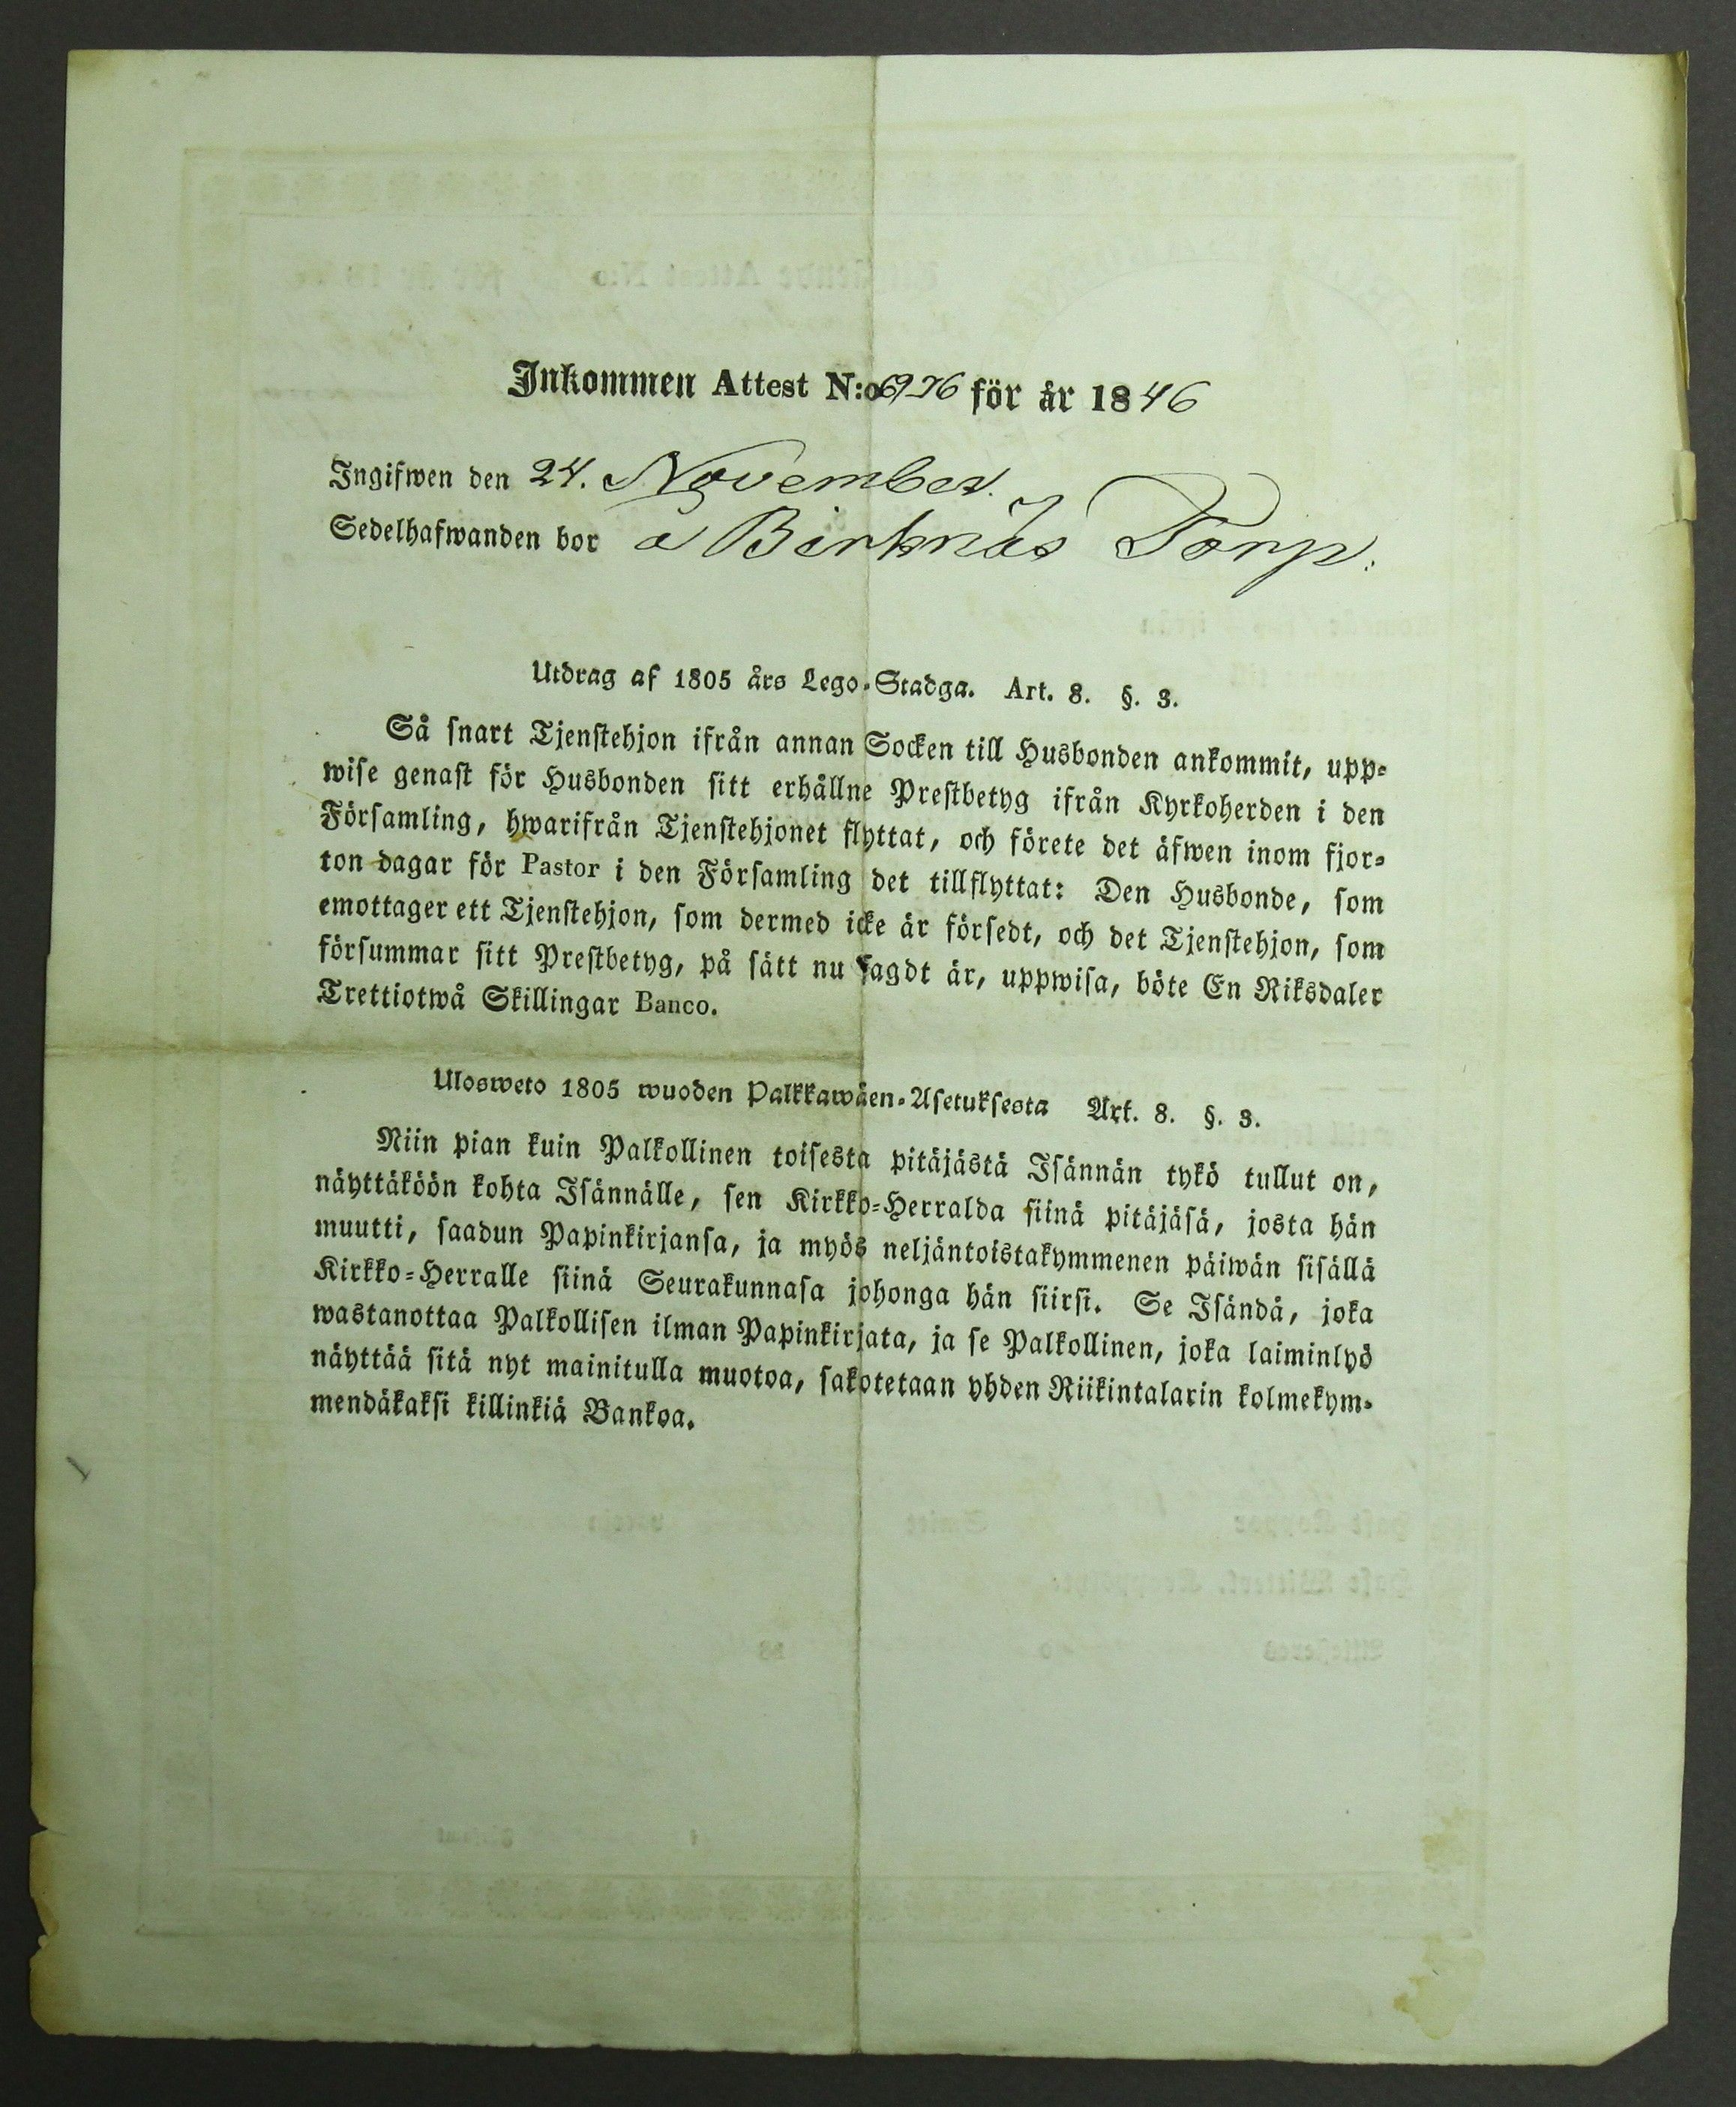 Inkommen Attest N:o 676 för år 1846
Ingifwen den 24. November.
Sedelhafwanden bor å Birknäs Torp.
Utdrag af 1805 års Lego-Stadga. Art. 8. §. 3.
Så snart Tjenstehjon ifrån annan Socken till Husbonden ankommit, upp-
wise genast för Husbonden sitt erhållne Prestbetyg ifrån Kyrkoherden i den
Församling, hwarifrån Tjenstehjonet flyttat, och förete det äfwen inom fjor-
ton dagar för Pastor i den Församling det tillflyttat: Den Husbonde, som
emottager ett Tjenstehjon, som dermed icke är försedt, och det Tjenstehjon, som
försummar sitt Prestbetyg, på sätt nu sagdt är, uppwisa, böte En Riksdaler
Trettiotwå Skillingar Banco.
Ulosweto 1805 wuoden Palkkawäen-Asetuksesta Art. 8. §. 3.
Niin pian kuin Palkollinen toisesta pitäjästä Isännän tykö tullut on,
näyttäköön kohta Isännälle, sen Kirkko-Herralda siinä pitäjäsä, josta hän
muutti, saadun Papinkirjansa, ja myös neljäntoistakymmenen päiwän sisällä
Kirkko-Herralle siinä Seurakunnasa johonga hän siirsi. Se Isändä, joka
wastanottaa Palkollisen ilman Papinkirjata, ja se Palkollinen, joka laiminlyö
näyttää sitä nyt mainitulla muotoa, sakotetaan yhden Riikintalarin kolmekym-
mendäkaksi killinkiä Bankoa.